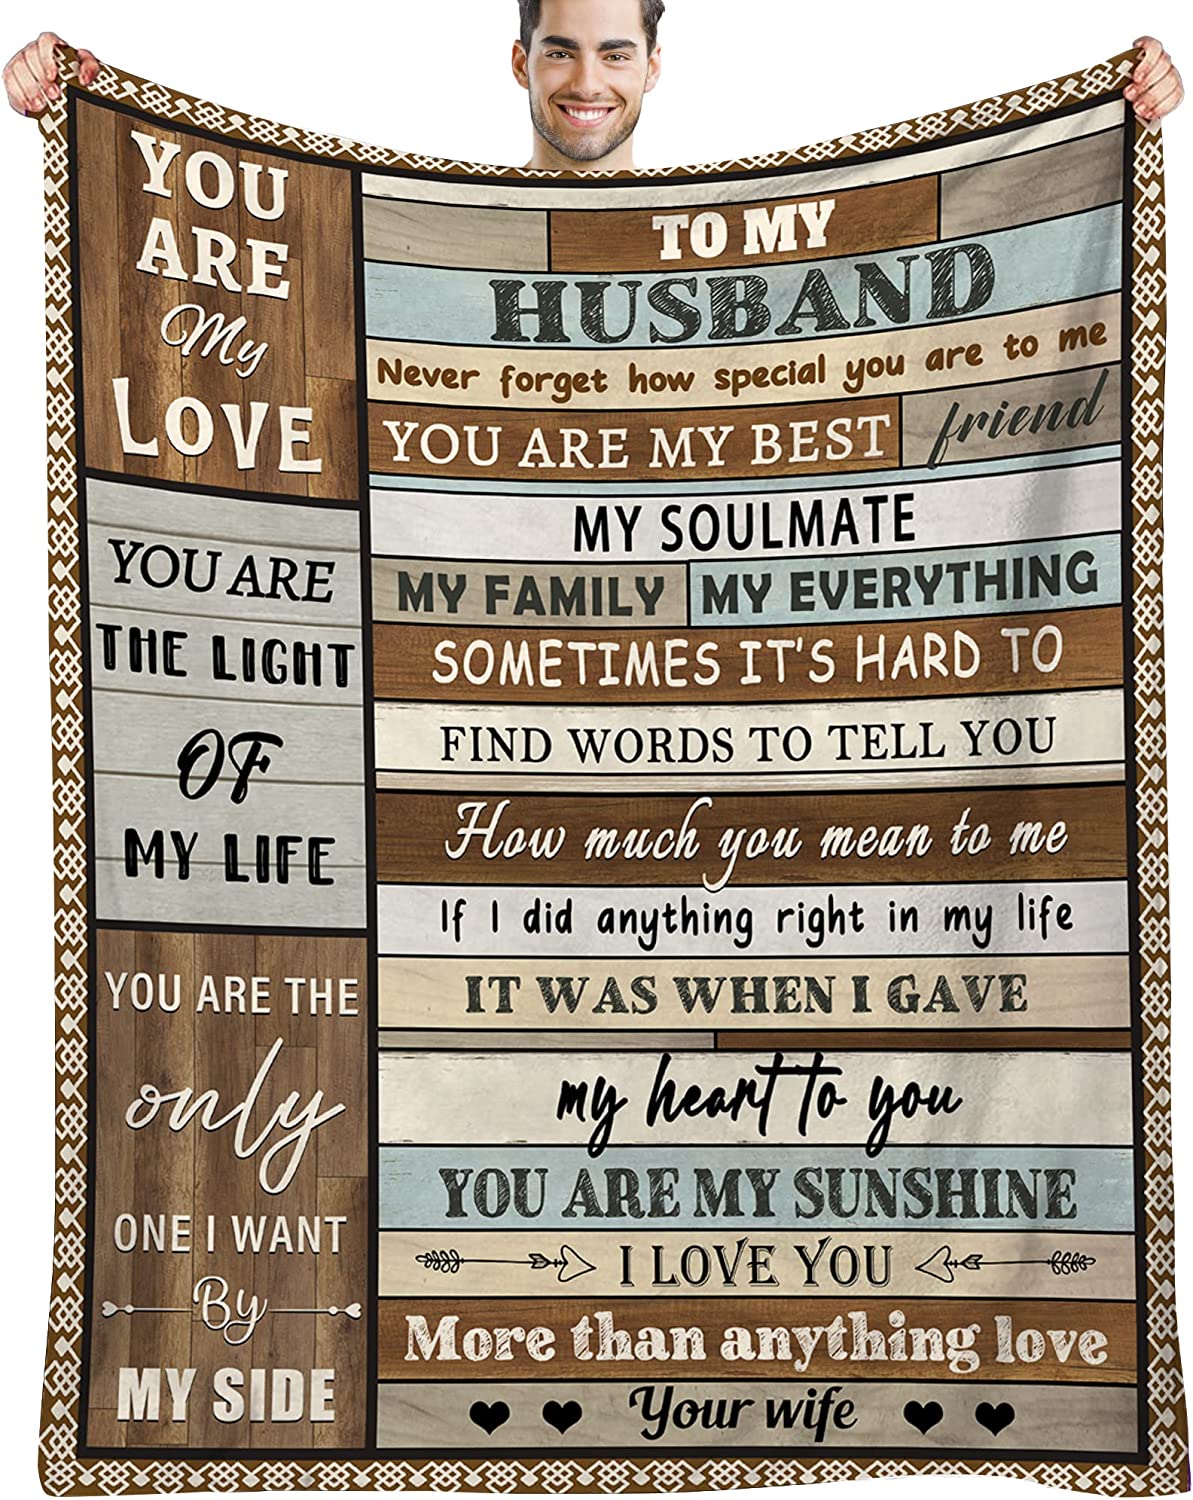 YOU
ARE
My
LOVE
YOU ARE
THE LIGHT
OF
MY LIFE
YOU ARE THE
only
ONE I WANT
By
MY SIDE
TO MY
HUSBAND
Never forget how special you are to me
YOU ARE MY BEST friend
MY SOULMATE
MY FAMILY MY EVERYTHING
SOMETIMES IT'S HARD TO
FIND WORDS TO TELL YOU
How much you mean to me
If I did anything right in my life
IT WAS WHEN I GAVE
my heart to you
YOU ARE MY SUNSHINE
I LOVE YOU
More than anything love
Your wife